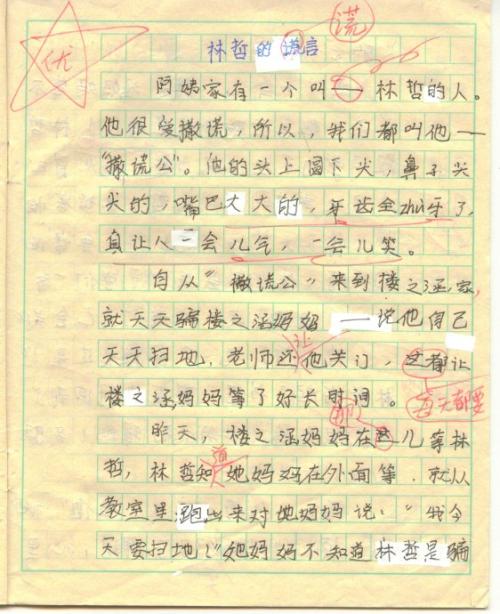 谎
优
林哲的谎言
阿姨家有一个叫——林哲的人。
他很爱撒谎，所以，我们都叫他—
"撒谎公"。他的头上圆下尖，鼻子尖
尖的，嘴巴大大的，牙齿全zhù牙了，
真让人一会儿气，一会儿笑。
自从"撒谎公"来到楼之涵家，
就天天骗楼之涵妈妈——说他自己
天天扫地，老师还让他关门，这都让
楼之涵妈妈等了好长时间。
每天都要
那
昨天，楼之涵妈妈在这儿等林
道
哲，林哲知她妈妈在外面等，就从
教室里跑出来对她妈妈说："我今
天要扫地！"她妈妈不知道林哲是骗